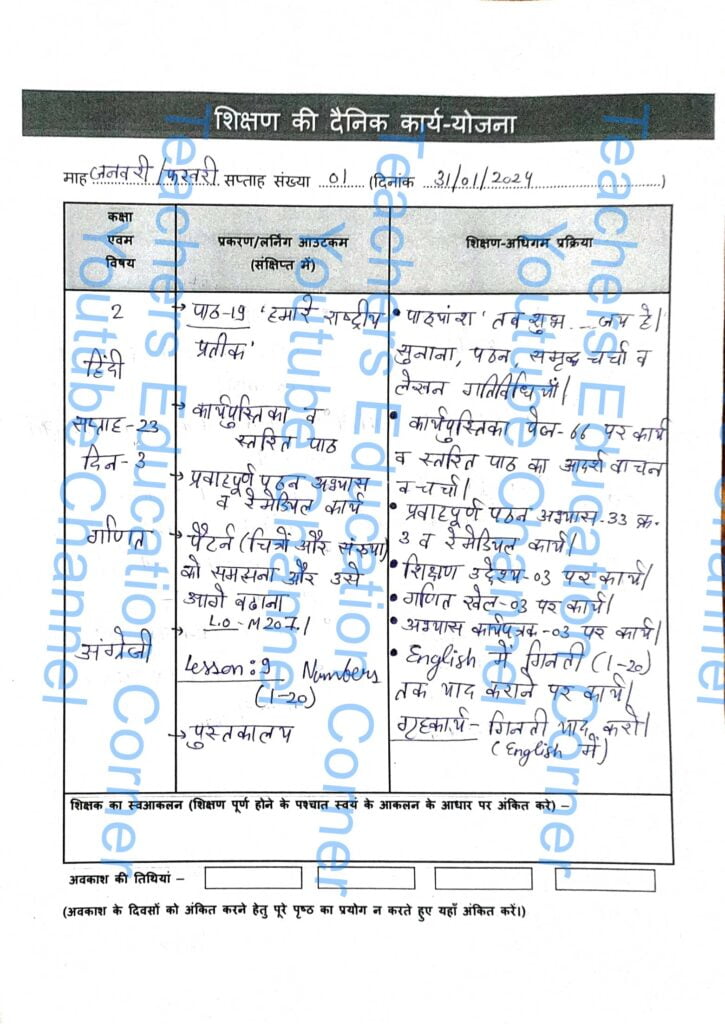 शिक्षण की दैनिक कार्य-योजना
माह जनवरी/फरवरी सप्ताह संख्या 01 (दिनांक 31/01/2024)
कक्षा
एवम
विषय
प्रकरण/लर्निंग आउटकम
(संक्षिप्त में)
शिक्षण-अधिगम प्रक्रिया
2
हिंदी
सप्ताह-23
दिन-3
गणित
अंग्रेजी
→ पाठ-19 'हमारे राष्ट्रीय
प्रतीक'
→ कार्यपुस्तिका व
स्तरित पाठ
→ प्रवाहपूर्ण पठन अभ्यास
व रेमेडियल कार्य
→ पैटर्न (चित्रों और संख्या)
को समझना और उसे
आगे बढाना
→ L.O-M207.।
Lesson: 9 Numbers
(1-20)
→ पुस्तकालय
• पाठ्यांश 'तव शुभ ... जय हे।
सुनाना, पठन, समूह चर्चा व
लेखन गतिविधियाँ।
• कार्यपुस्तिका पेज-66 पर कार्य
व स्तरित पाठ का आदर्श वाचन
व चर्चा।
• प्रवाहपूर्ण पठन अभ्यास-33 क्र.
3 व रेमेडियल कार्य।
• शिक्षण उद्देश्य-03 पर कार्य।
• गणित खेल-03 पर कार्य।
• अभ्यास कार्यपत्रक-03 पर कार्य।
• English में गिनती (1-20)
तक याद कराने पर कार्य।
गृहकार्य- गिनती याद करो।
(English में)
शिक्षक का स्वआकलन (शिक्षण पूर्ण होने के पश्चात स्वयं के आकलन के आधार पर अंकित करे) –
अवकाश की तिथियां –
(अवकाश के दिवसों को अंकित करने हेतु पूरे पृष्ठ का प्रयोग न करते हुए यहाँ अंकित करें।)
Teachers Education Corner
Youtube Channel
Teachers Education Corner
Youtube Channel
Teachers Education Corner
Youtube Channel